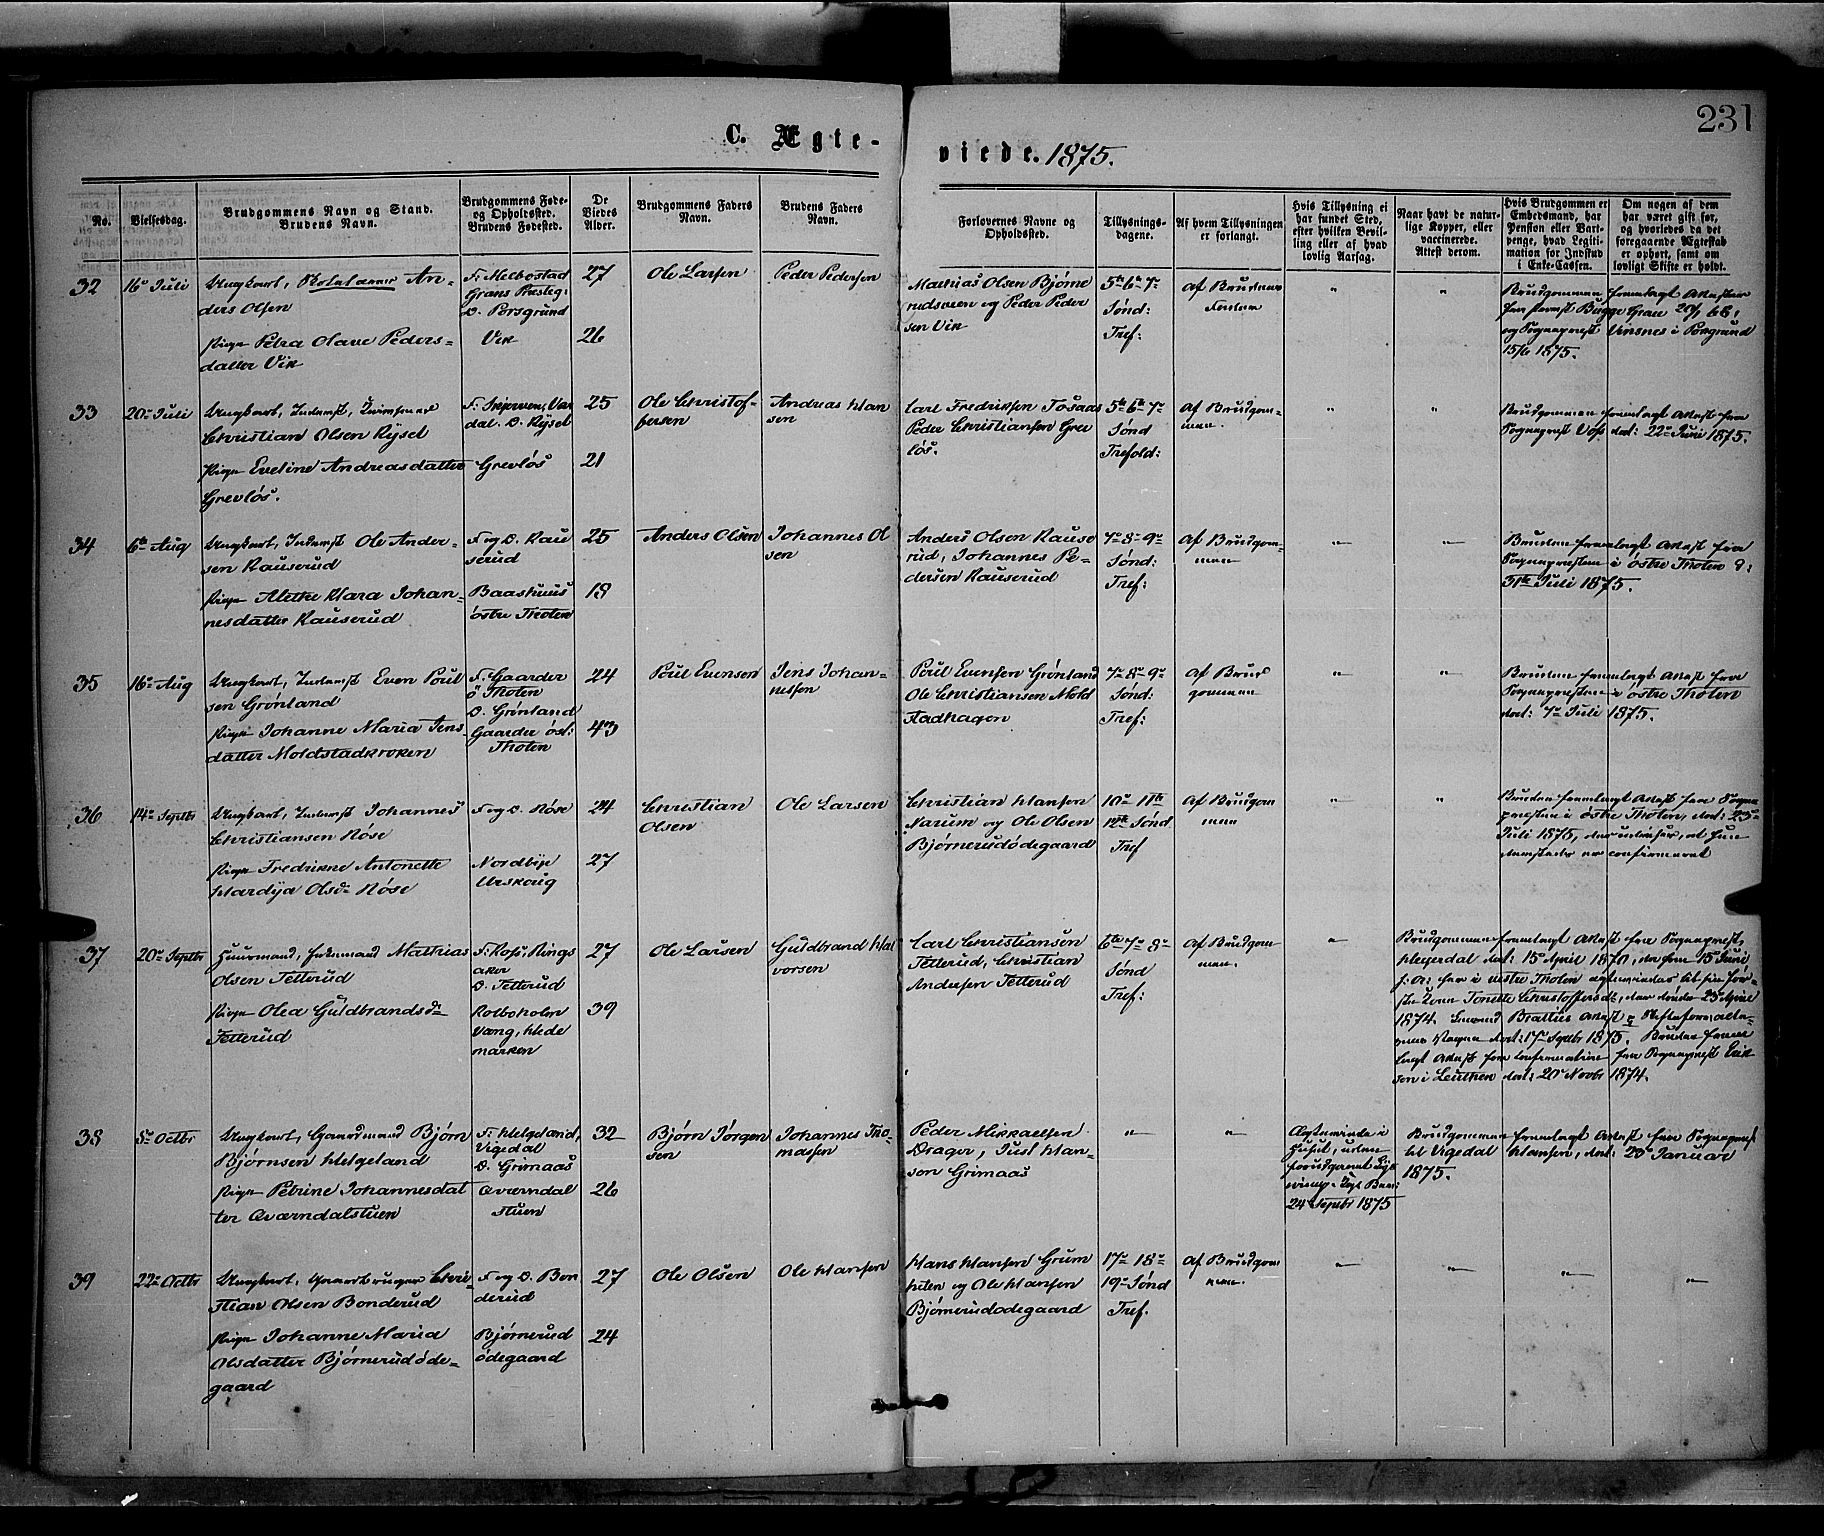 231
C. Ægte-
viede. 1875.
No.
Vielsesdag.
Brudgommens Navn og Stand.
Brudens Navn.
Brudgommens Føde-
og Opholdssted.
Brudens Fødested.
De
Viedes
Alder.
Brudgommens Faders
Navn.
Brudens Faders
Navn.
Forlovernes Navne og
Opholdssted.
Tillysnings-
dagene.
Af hvem Tillysningen
er forlangt.
Hvis Tillysning ei
har fundet Sted,
efter hvilken Bevil-
ling eller af hvad
lovlig Aarsag.
Naar havt de natur-
lige Kopper, eller
vaccinerede.
Attest derom.
Hvis Brudgommen er
Embedsmand, har
Pension eller Vart-
penge, hvad Legiti-
mation for Indskud
i Enke-Cassen.
Om nogen af dem
har været gift før,
og hvorledes da det
foregaaende Ægteskab
er ophørt, samt om
lovligt Skifte er holdt.
32
16de Juli
Ungkarl, An-
ders Olsen
Pige Petra Olave Peders-
datter Vik
F. Melbostad
Grans Præsteg:
O. Porsgrund
Vik
27
26
Ole Larsen
Peder Pedersen
Mathias Olsen Bjørne
rudsveen og Peder Peder
sen Vik
5te 6te 7de
Sønd:
Tref:
Af Brudens
"
"
Brudgommen fremlagt Attester
fra Bugge Gran 20/1 66,
og Sogneprest Vinsnes i Porsgrund
15/6 1875.
33
20de Juli
Ungkarl, Inderst,
Christian Olsen Kysel
Pige Eveline Andreasdatter
Grevløs.
F. Skjerven, Var
dal. O. Kysel
Grevløs
25
21
Ole Christof-
fersen
Andreas Han
sen
Carl Fredriksen Tosaas
Peder Christiansen Grev
løs.
5te 6te 7de
Sønd
Trefold:
Af Brudgom-
men.
"
"
Brudgommen fremlagt Attest fra
Sogneprest Voss dat: 22de Juni 1875.
34
6te Aug
Ungkarl, Inderst Ole Ander-
sen Kauserud
Pige Alethe Klara Johan-
nesdatter Kauserud
F. og O. Kau
serud
Baashuus
østre Thoten
25
18
Anders Olsen
Johannes Ol
sen
Anders Olsen Kause
rud, Johannes Pe-
dersen Kauserud
7de 8de 9de
Sønd:
Tref:
Af Brudgom-
men
"
"
Bruden fremlagt Attest fra
Sognepresten i østre Thoten d:
31te Juli 1875.
35
16de Aug
Ungkarl, Inderst Even Poul
sen Grønland
Pige Johanne Maria Jens-
datter Moldstadkroken
F. Gaarder
ø. Thoten
O. Grønland
Gaarder øst:
Thoten
24
43
Poul Evensen
Jens Johan-
nessen
Poul Evensen Grønland
Ole Christiansen Mold
stadhagen
7de 8de 9de
Sønd:
Tref:
Af Brud
gommen
"
"
Bruden fremlagt Attest fra
Sognepresten i østre Thoten
dat: 7de Juli 1875.
36
14de Septbr
Ungkarl, Inderst Johannes
Christiansen Nøse
Pige Fredrikke Antonette
Hardya Olsd. Nøse
F. og O. Nøse
Nordbye
Urskoug
24
27
Christian
Olsen
Ole Larsen
Christian Hansen
Narum og Ole Olsen
Bjørnerudødegaard
10de 11te
12te Sønd
Tref
Af Brudgom
men
"
"
Bruden fremlagt Attest fra Sogne
presten i østre Thoten, dat: 23de
Juli 1875, der udviser, at hun
er confirmeret
37
20de Septbr
Huusmand, Mathias
Olsen Tetterud
Pige Olea Guldbrandsd.
Tetterud
F. Rosj, Rings
aker
O. Tetterud
Kolboholm
Vang, Hede
marken
27
39
Ole Larsen
Guldbrand Hal
vorsen
Carl Christiansen
Tetterud, Christian
Andersen Tetterud
6te 7de 8de
Sønd
Tref:
Af Brudgom
men.
"
Brudgommen fremlagt Attest fra Sogneprest
dat: 15de April 1870, 15de Juni
her i vestre Thoten
Tonette Christoffersdt., der døde 23de April
1874. Brattlies Attest
dat: 17de Septbr 1875. Bruden frem
lagt Attest for Confirmation fra Sogneprest Erik
sen i Leuthen dat: 20de Novbr 1874.
38
5te Octbr
Ungkarl, Gaardmand Bjørn
Bjørnsen Helgeland
Pige Petrine Johannesdat
ter Qværndalstuen
F. Helgeland,
Vigedal
O. Grimaas
Qværndal
stuen
32
26
Bjørn Jørgen
sen
Johannes Tho-
massen
Peder Mikkaelsen
Drager, Just Han-
sen Grimaas
"
"
Ægteviede i
Huset, uden
forudgaaet Lys
24de Septbr 1875
Brudgommen fremlagt Attest fra Sogneprest
til Vigedal Hansen, dat: 23de Januar
1875.
39
22de Octbr
Ungkarl, Gaardbruger Chri-
stian Olsen Bonderud
Pige Johanne Maria
Olsdatter Bjørnerudøde-
gaard
F. og O. Bon
derud
Bjørnerud
ødegaard
27
24
Ole Olsen
Ole Hansen
Hans Hansen Grum
heten og Ole Hansen
Bjørnerudødegaard
17de 18de
19de Sønd
Tref.
Af Brudgom
men.
"
"
"
"